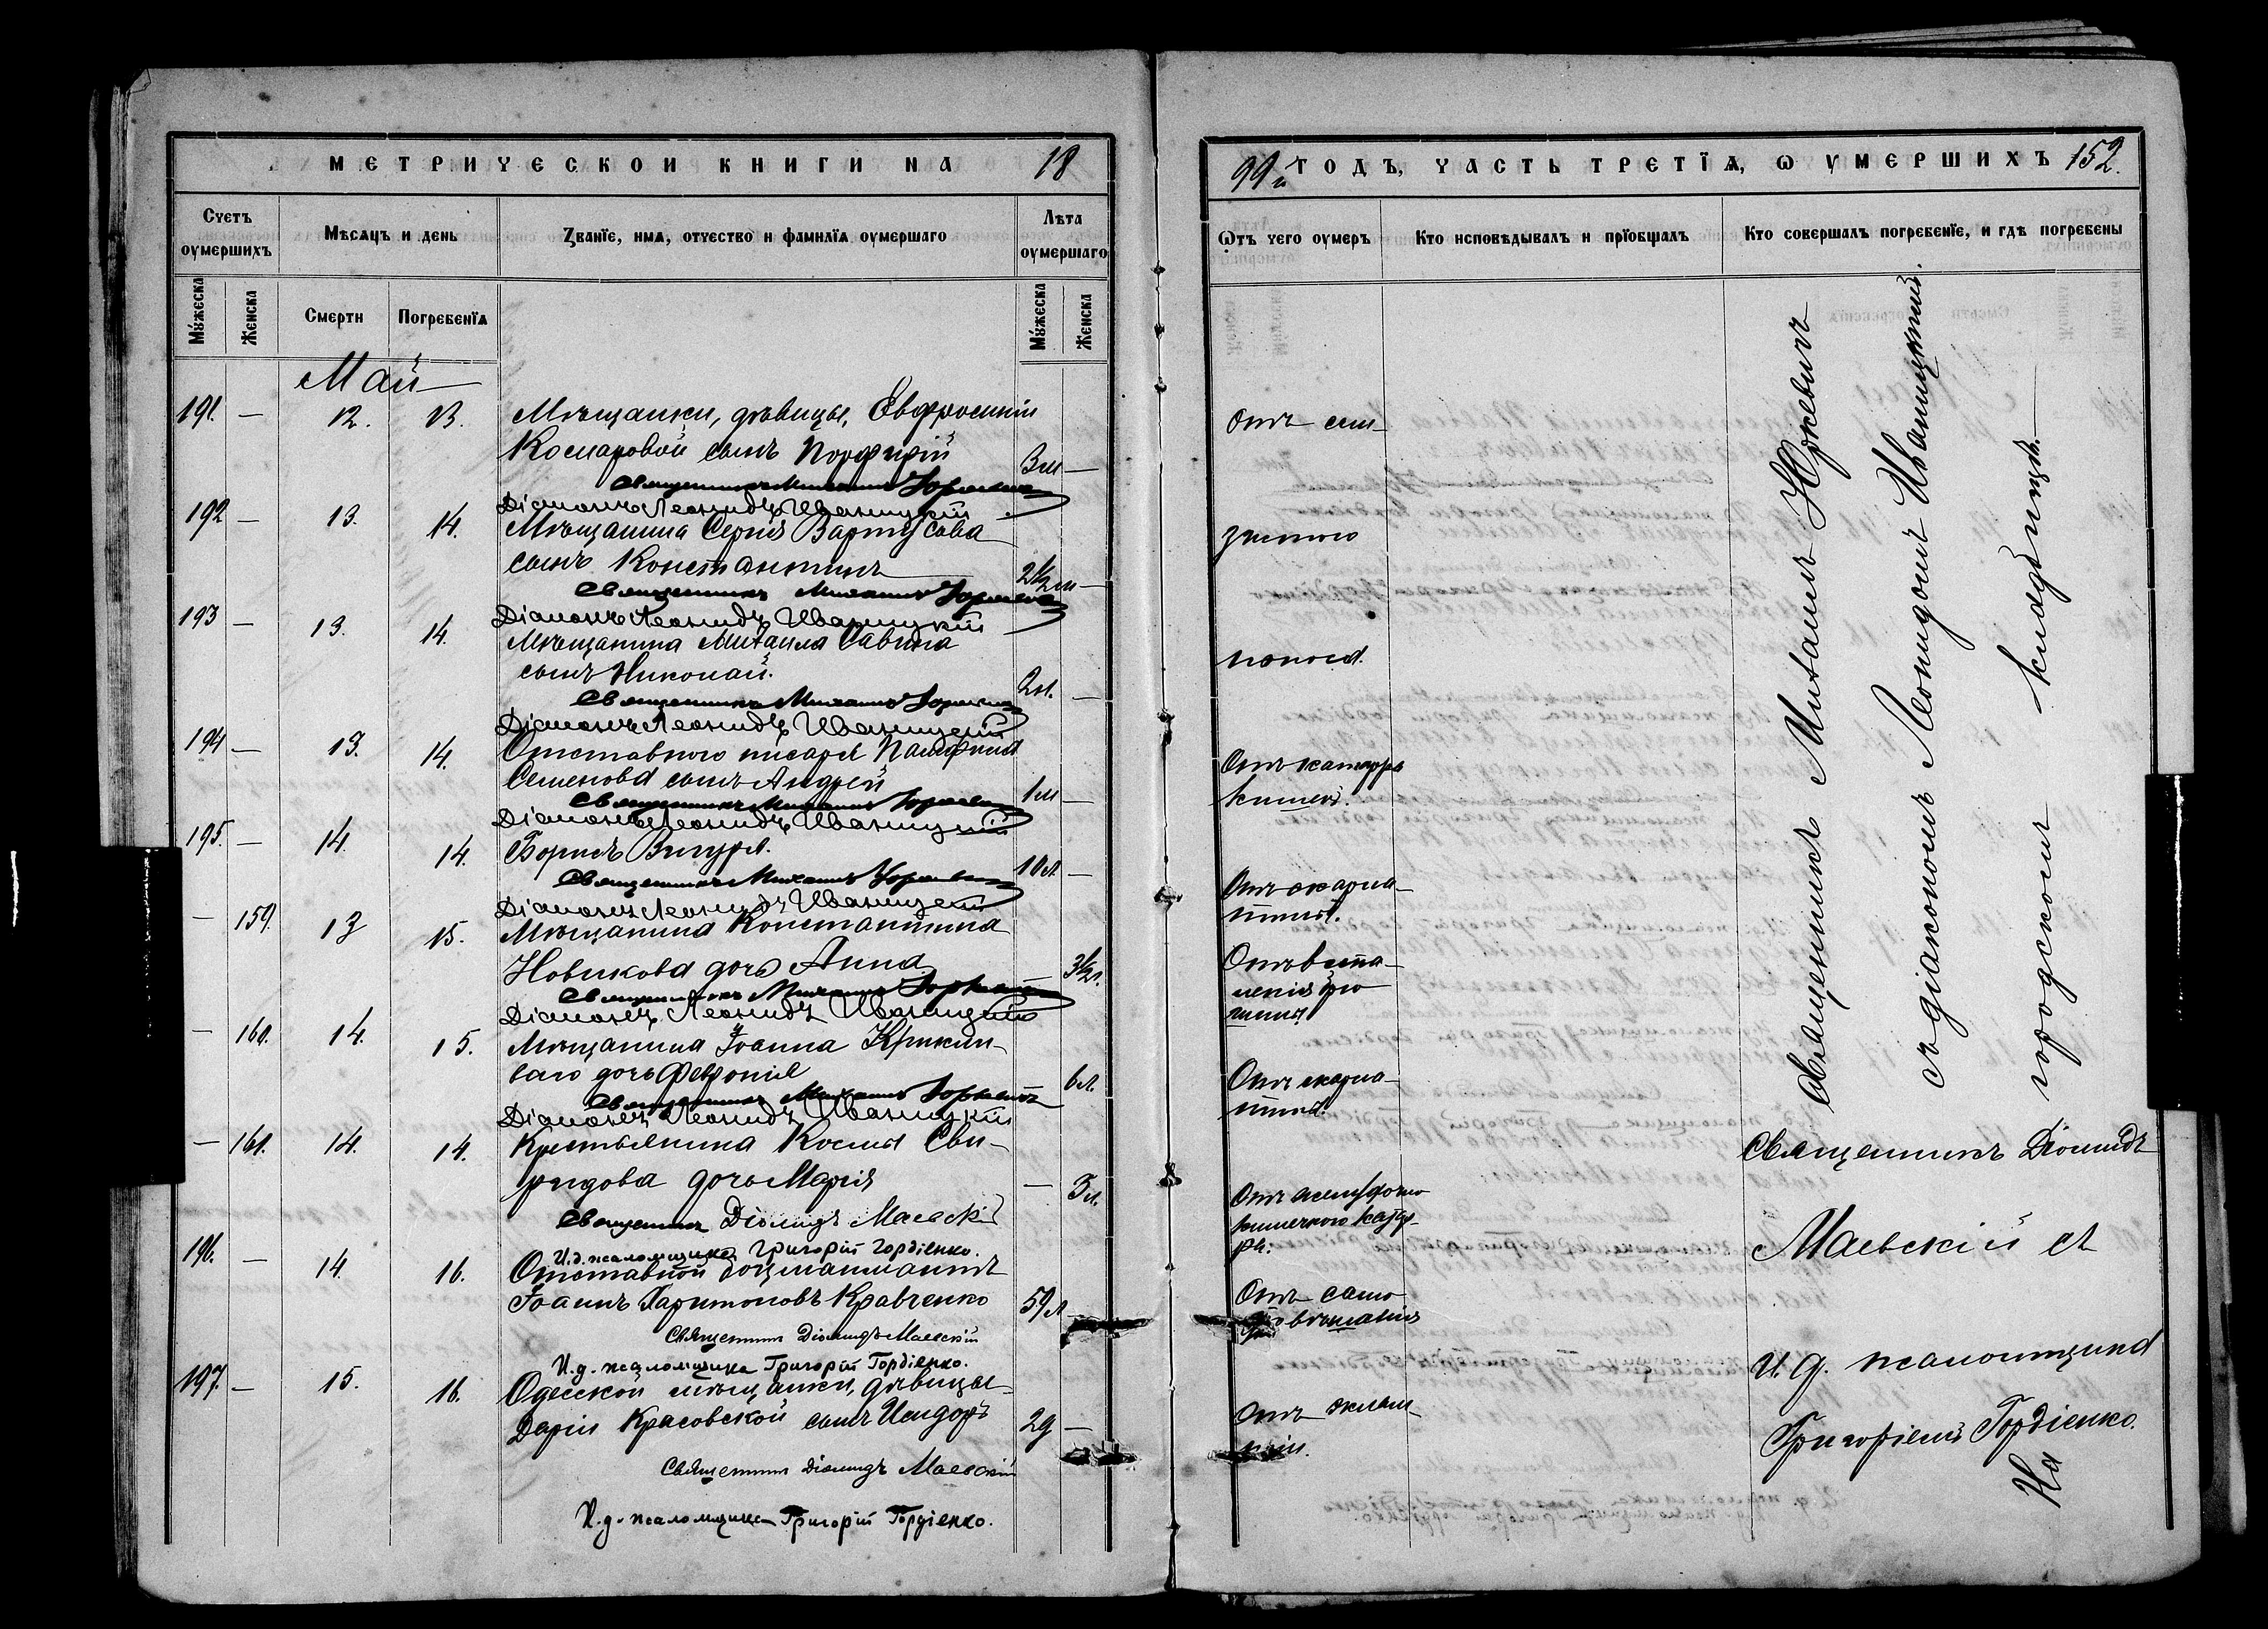 МЕТРИЧЕСКОЙ КНИГИ НА 18
Счетъ оумершихъ
Мѣсяцъ и день
Званїе, имя, отчество и фамилїя оумершаго
Лѣта оумершаго
Мужеска
Женска
Смерти
Погребенїя
Мужеска
Женска
Май
191. — 12. 13. Мѣщанки, дѣвицы, Евфросиніи
Комаровой сынъ Порфирій 3м —
Священникъ Михаилъ Юркевичъ
Діаконъ Леонидъ Иваницкій
192 — 13. 14. Мѣщанина Сергія
сынъ Константинъ 2½м —
Священникъ Михаилъ Юркевичъ
Діаконъ Леонидъ Иваницкій
193 — 13. 14. Мѣщанина Михаила Савина
сынъ Николай. 2м. —
Священникъ Михаилъ Юркевичъ
Діаконъ Леонидъ Иваницкій
194 — 13. 14. Отставного писаря Памфила
Семенова сынъ Андрей 1м —
Священникъ Михаилъ Юркевичъ
Діаконъ Леонидъ Иваницкій
195. — 14. 14. Борисъ Вигура. 10л —
Священникъ Михаилъ Юркевичъ
Діаконъ Леонидъ Иваницкій
— 159. 13 15. Мѣщанина Константина
Новикова дочь Анна 3½г.
Священникъ Михаилъ Юркевичъ
Діаконъ Леонидъ Иваницкій
— 160. 14. 15. Мѣщанина Іоанна
ваго дочь Февронія 6л.
Священникъ Михаилъ Юркевичъ
Діаконъ Леонидъ Иваницкій
— 161. 14. 14. Крестьянина Космы Сви-
ридова дочь Марія — 5л.
Священникъ Діомидъ Маевскій
И.д. псаломщика Григорій Гордіенко.
196. — 14. 16. Отставной боцманматъ
Іоаннъ Харитоновъ Кравченко 59л —
Священникъ Діомидъ Маевскій
И.д. псаломщика Григорій Гордіенко.
197. — 15. 16. Одесской мѣщанки, дѣвицы
Даріи Красовской сынъ Исидоръ 2д —
Священникъ Діомидъ Маевскій
И.д. псаломщика Григорій Гордіенко.
99й ГОДЪ, ЧАСТЬ ТРЕТЇЯ, Ѡ УМЕРШИХЪ 152.
Ѿтъ чего оумеръ
Кто исповѣдывалъ и прїобщалъ
Кто совершалъ погребенїе, и гдѣ погребены
Отъ
поноса.
Отъ катарра
кишекъ.
Отъ скарла-
тины.
Отъ воспа-
ленія брю
шины
Отъ скарла-
тины.
Отъ желудочно
кишечного катар-
ра.
Отъ само
Отъ эклам-
псіи.
Священникъ Михаилъ Юркевичъ
съ діакономъ Леонидомъ Иваницкимъ.
городскомъ кладбищѣ. —
Священникъ Діомидъ
Маевскій съ
и. д. псаломщика
Григоріемъ Гордіенко.
На